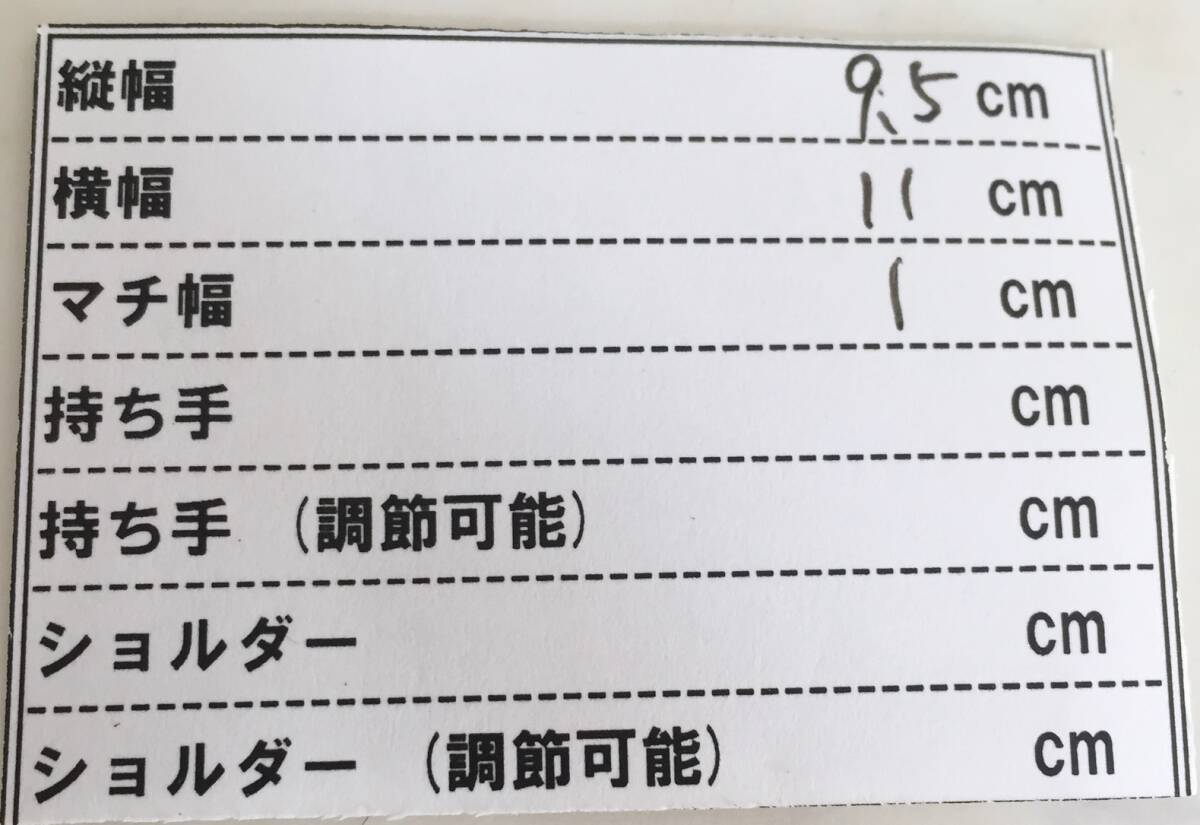 縦幅 9.5 cm
横幅 11 cm
マチ幅 1 cm
持ち手 cm
持ち手 (調節可能) cm
ショルダー cm
ショルダー (調節可能) cm